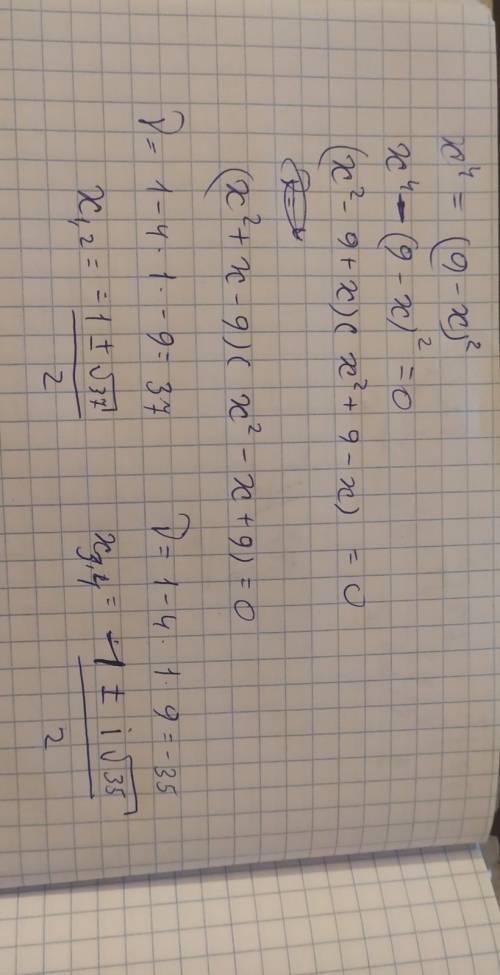 x⁴ = (9 - x)²
x⁴ - (9 - x)² = 0
(x² - 9 + x)( x² + 9 - x) = 0
(x² + x - 9)( x² - x + 9) = 0
D = 1 - 4 · 1 · -9 = 37 D = 1 - 4 · 1 · 9 = -35
x₁,₂ = -1 ± √37 / 2 x₃,₄ = 1 ± i√35 / 2